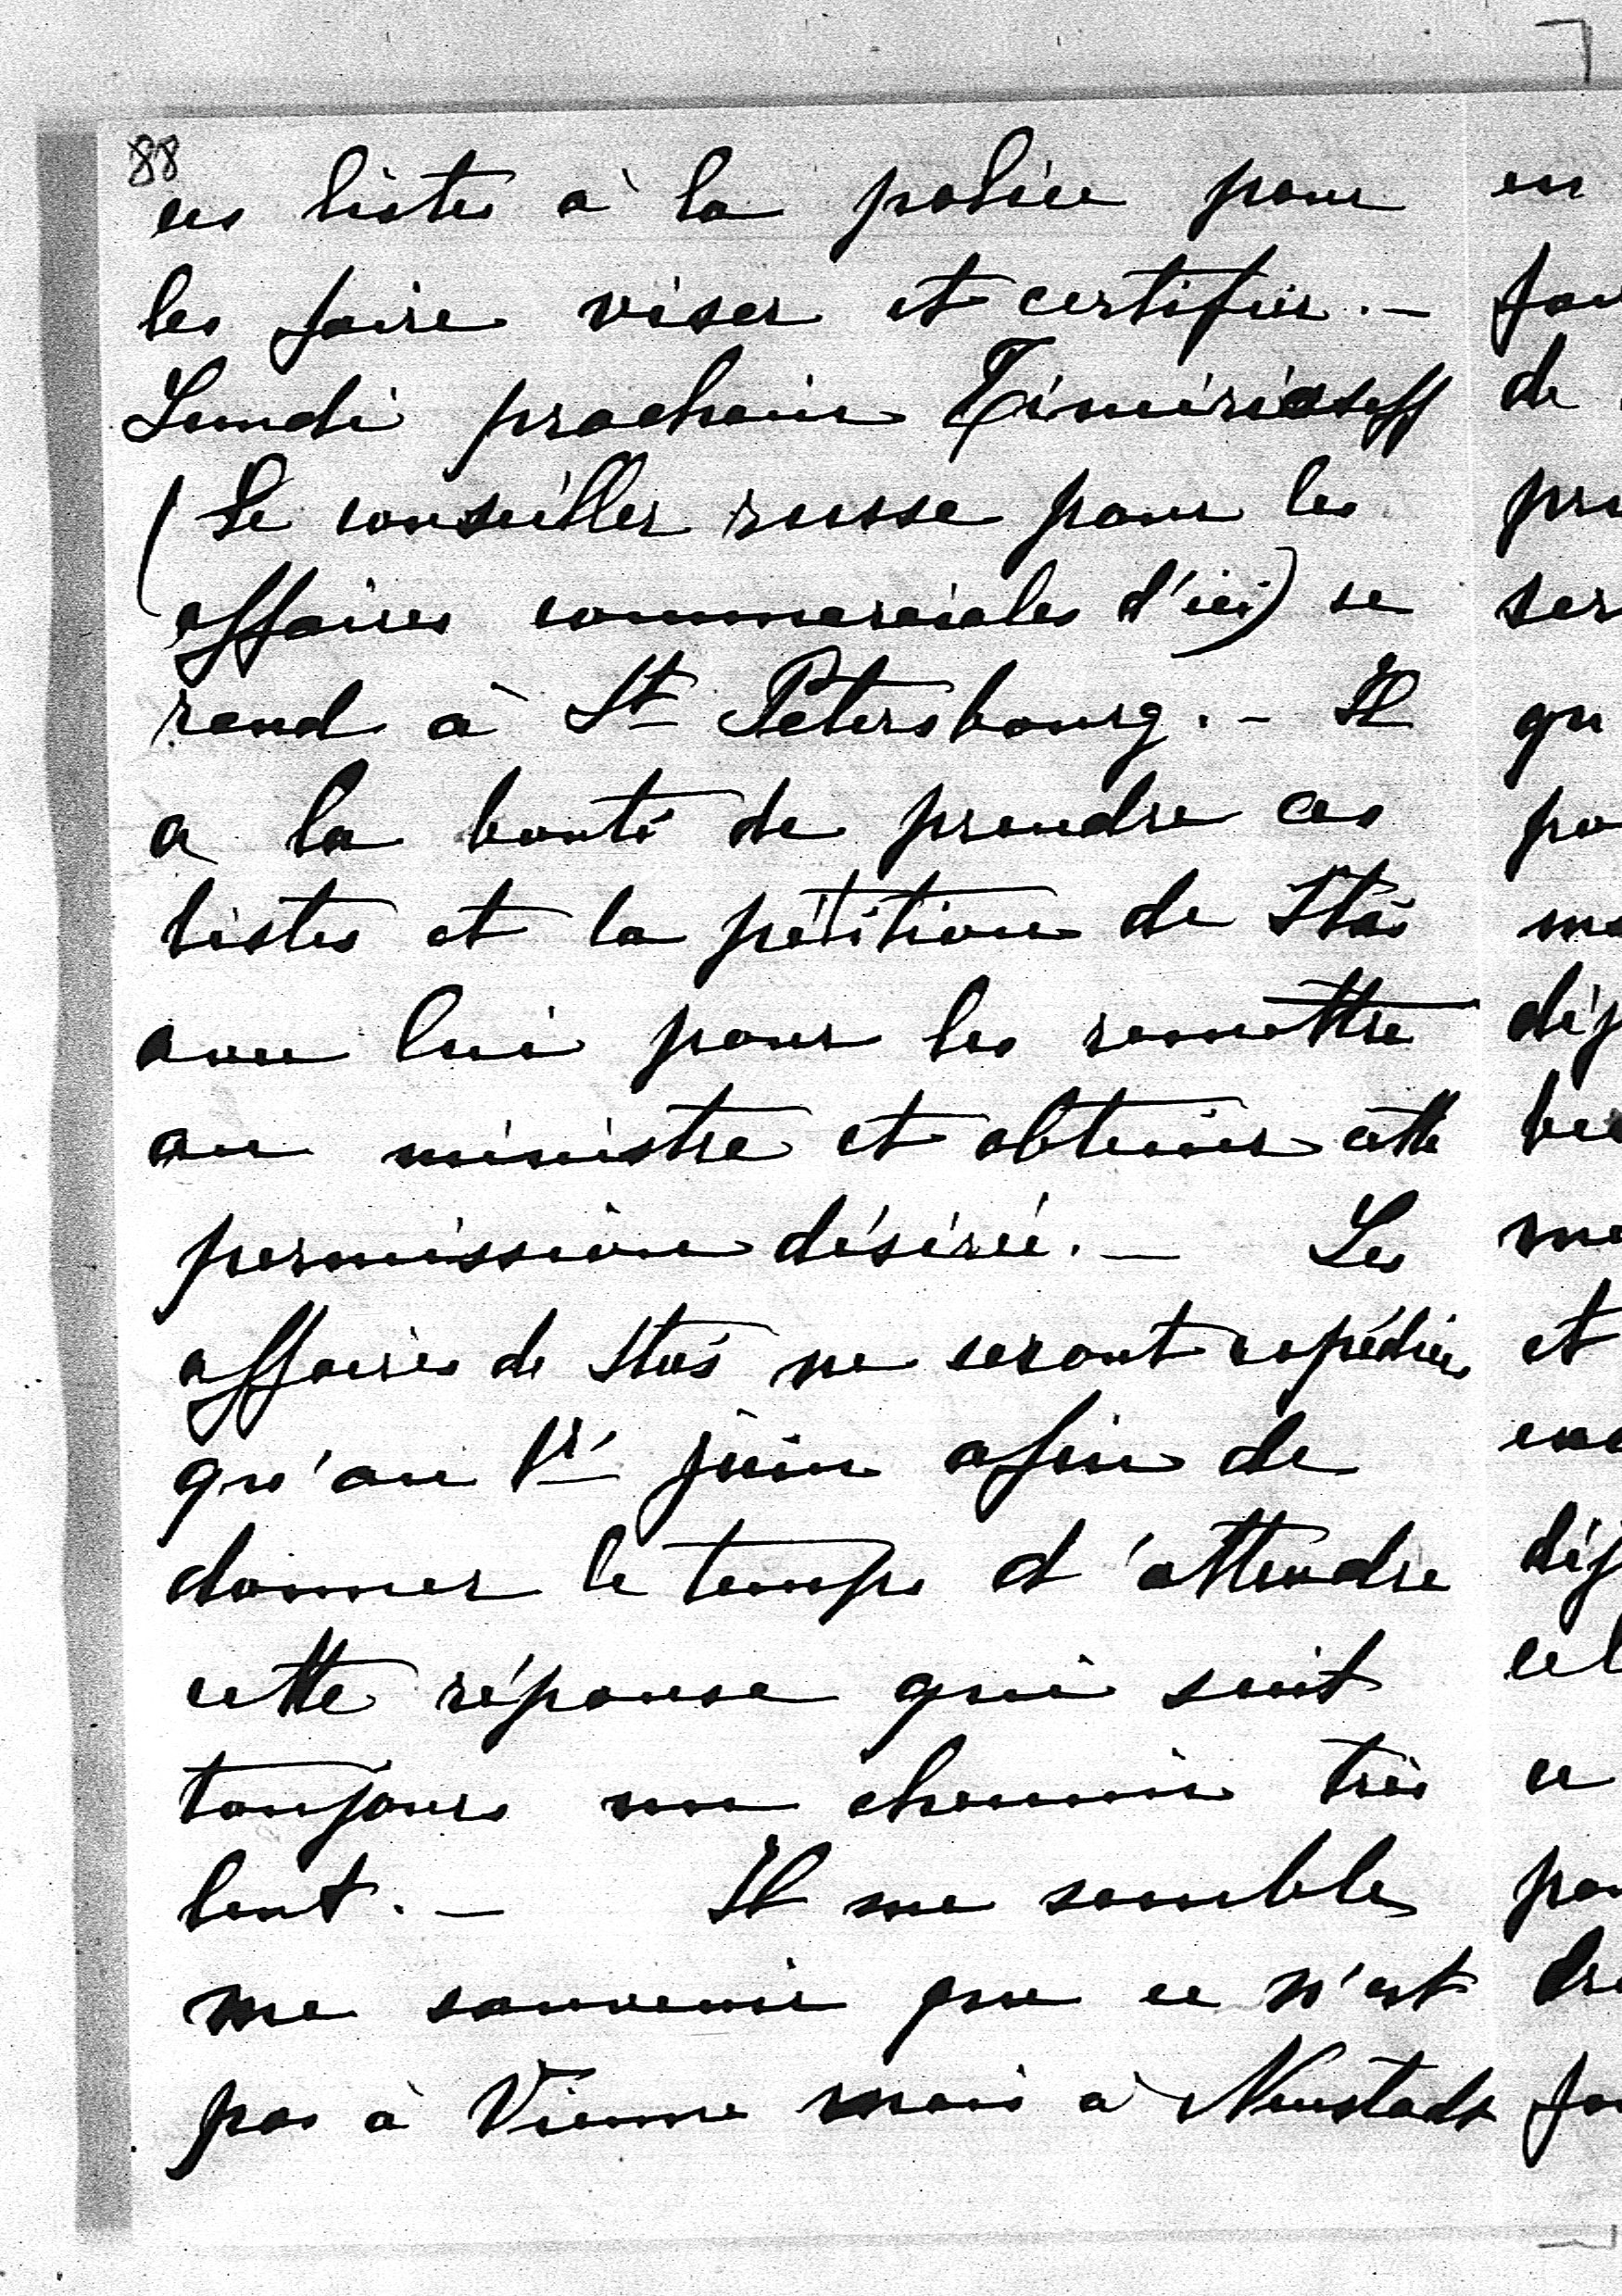 88
ces listes à la police pour
les faire viser et certifier. —
Lundi prochain Timiriaseff
(Le conseiller russe pour les
affaires commerciales d'ici) se
rend à St Pétersbourg. — Il
a la bonté de prendre ces
listes et la pétition de Stas
avec lui pour les remettre
au ministre et obtenir cette
permission désirée. — Les
affaires de Stas ne seront expédiées
qu'au 1r juin afin de
donner le temps d'attendre
cette réponse qui suit
toujours un chemin très
lent. — Il me semble
me souvenir que ce n'est
pas à Vienne mais à Neustadt